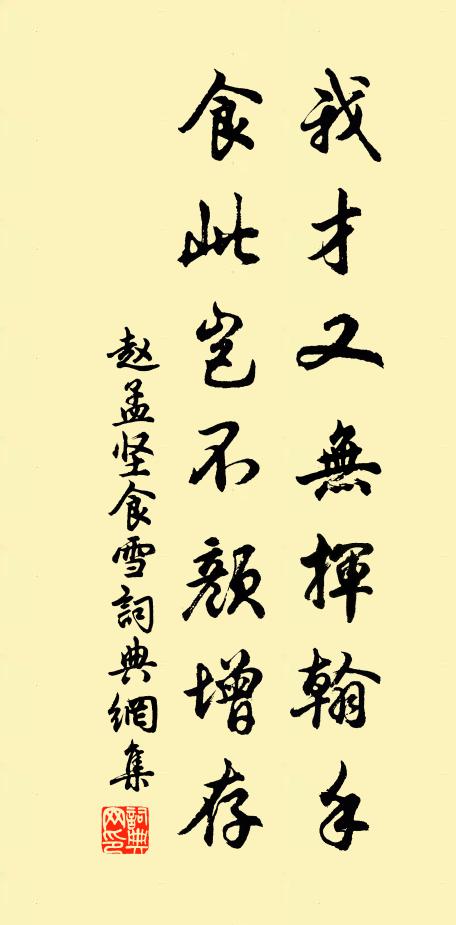 我才又無揮翰手
食此豈不顏增存
赵孟坚食雪詞典網集
詞典網印